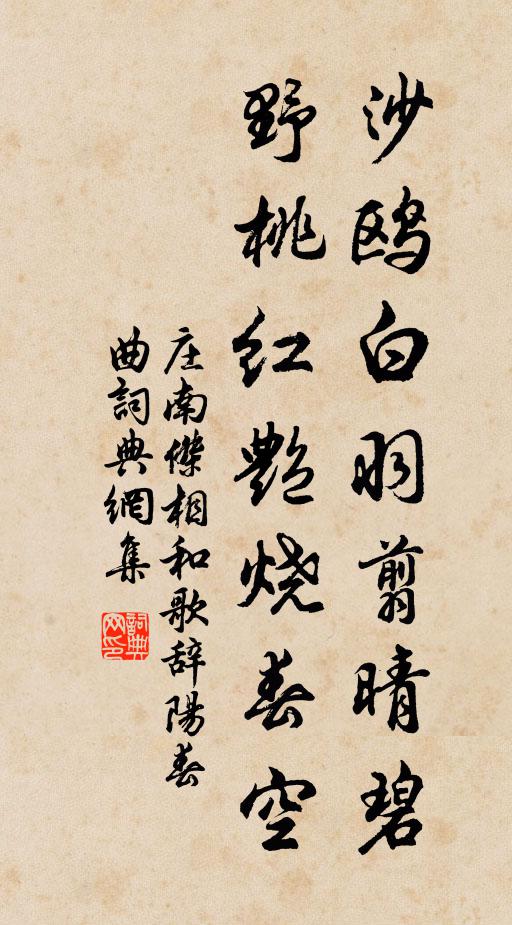 沙鸥白羽翦晴碧
野桃红艷烧春空
庄南傑相和歌辞陽春
曲詞典網集
詞典网印